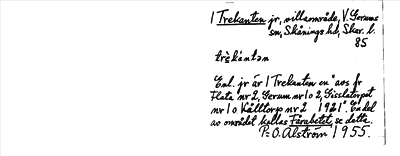 1 Trekanten jr, villaområde, V. Gerums
sn, Skånings hd, Skar. l.
85
trekàntən
Enl. jr är 1 Trekanten en "avs fr
Flata nr 2, Gerum nr 1 o 2, Gisslatorpet
nr 1 o Källtorp nr 2 1921". En del
av området kallas Fårabetet, se detta.
P-O. Alström 1955.